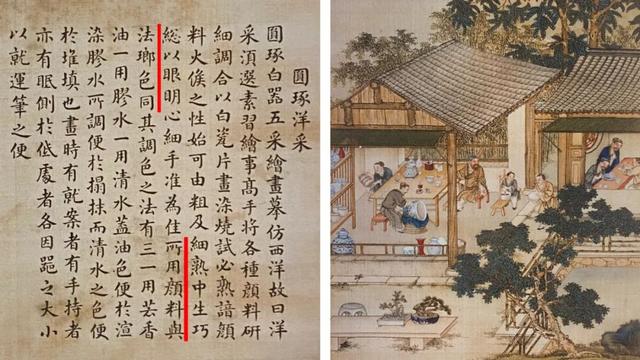 圓琢洋采
圓琢白噐五采繪畫摹仿西洋故曰洋
采湏選素習繪事髙手將各種顔料研
細調合以白瓷片畫染燒試必熟諳顔
料火候之性始可由粗及細熟中生巧
総以眼明心細手准為佳所用顔料與
法瑯色同其調色之法有三一用芸香
油一用膠水一用清水蓋油色便於渲
染膠水所調便於搨抹而清水之色便
於堆填也畫時有就案者有手持者
亦有眠側於低處者各因噐之大小
以就運筆之便